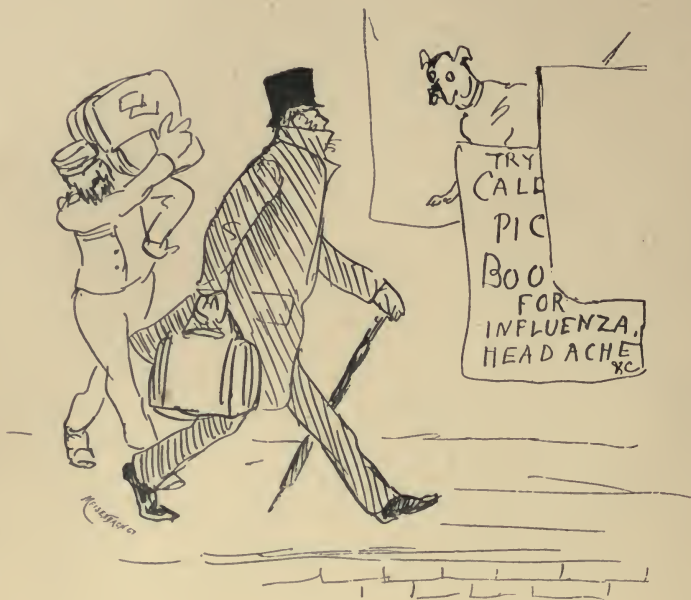 TRY
CALD
PIC
BOO
FOR
INFLUENZA.
HEAD ACHE
&C